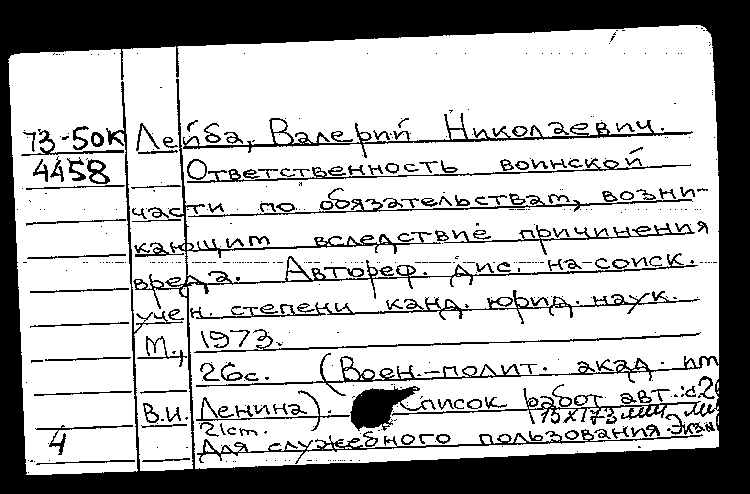 73-50К Лейба, Валерий Николаевич.
4458 Ответственность воинской
части по обязательствам, возни-
кающим вследствие причинения
вреда. Автореф. дис. на соиск.
учен. степени канд. юрид. наук.
М., 1973.
26с. (Воен.-полит. акад. им
В.И. Ленина). Список работ авт.: с.26
21см.
4 Для служебного пользования. Экз